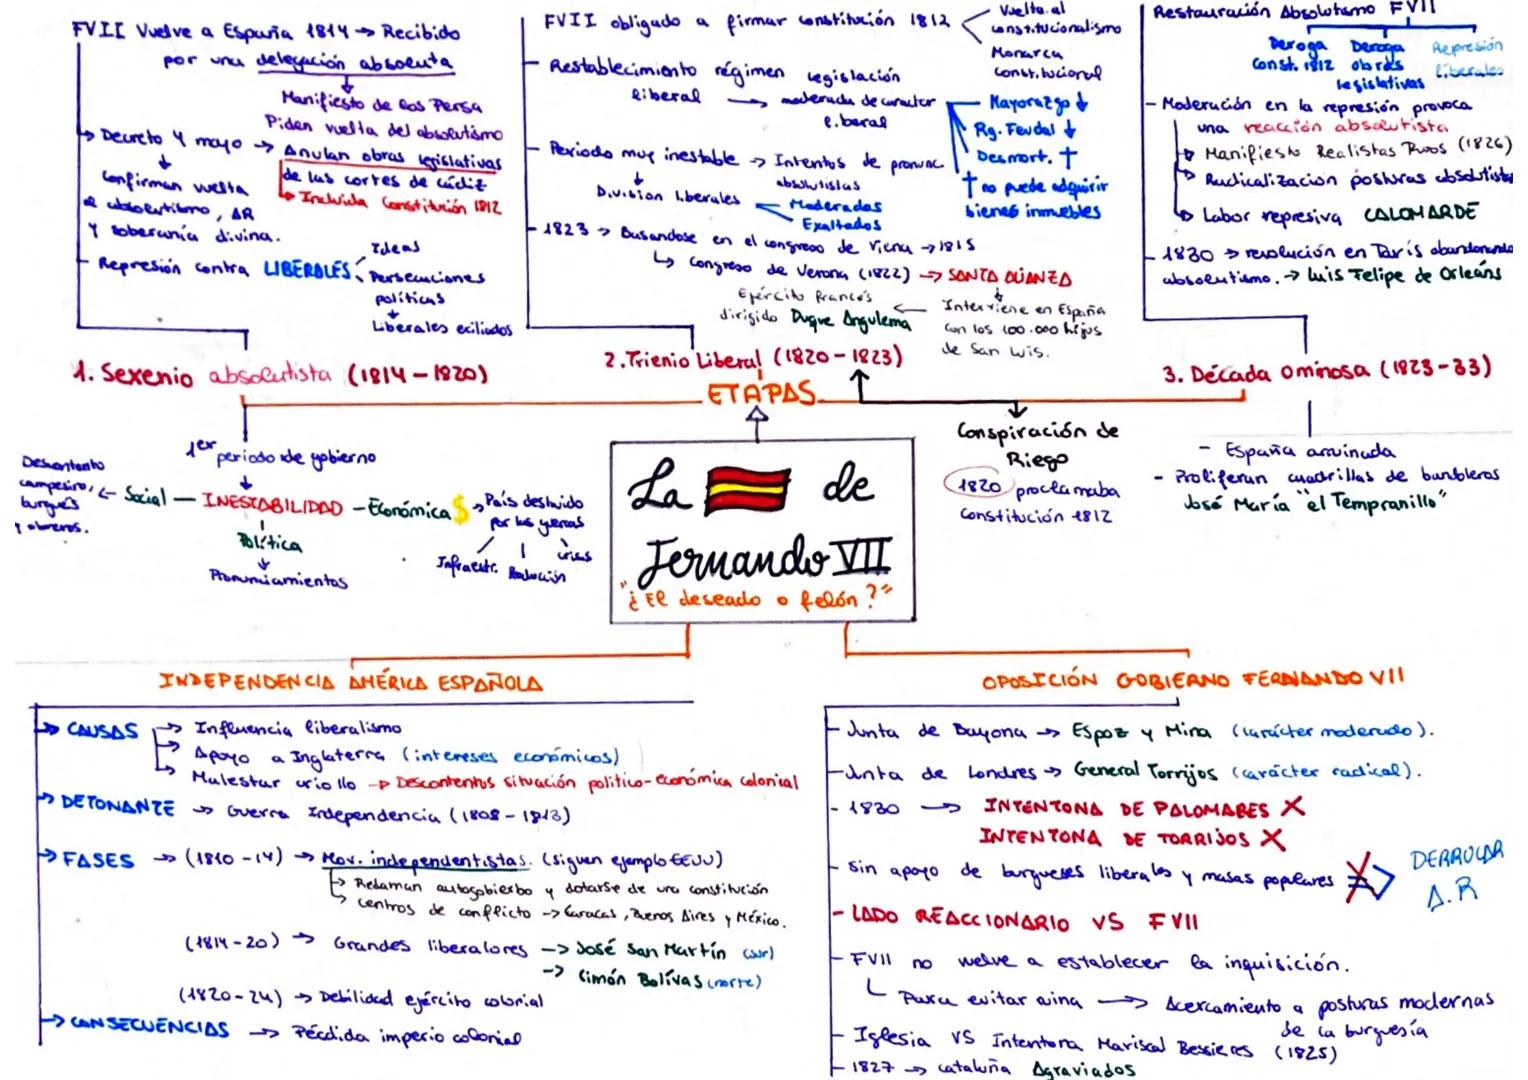 FVII Vuelve a España 1814 → Recibido
por una delegación absoluta
Manifiesto de los Persa
Piden vuelta del absolutismo
→ Decreto 4 mayo → Anulan obras legislativas
de las cortes de cádiz
→ Incluida Constitución 1812
Confirman vuelta
al absolutismo, AR
y soberanía divina.
- Represión contra LIBERALES
Ideas
Persecuciones
políticas
Liberales exiliados
1. Sexenio absolutista (1814-1820)
FVII obligado a firmar constitución 1812
Vuelta al
constitucionalismo
Monarca
constitucional
- Restablecimiento régimen
liberal
→ legislación
moderada de caracter
liberal
Mayorazgo ↓
Rg. Feudal ↓
Desmort. †
† no puede adquirir
bienes inmuebles
- Periodo muy inestable → Intentos de pronunc.
absolutistas
División liberales
Moderados
Exaltados
- 1823 → Basandose en el congreso de Viena → 1815
↳ Congreso de Verona (1822) → SANTA ALIANZA
Interviene en España
con los 100.000 hijos
de San Luis.
Ejército francés
dirigido Duque Angulema
2. Trienio Liberal (1820-1823)
Restauración Absolutismo FVII
Deroga
Const. 1812
Deroga
obras
legislativas
Represión
liberales
- Moderación en la represión provoca
una reacción absolutista
Manifiesto Realistas Puros (1826)
Radicalización posturas absolutista
Labor represiva CALOMARDE
- 1830 → revolución en París abandonando
absolutismo. → Luis Felipe de Orleáns
3. Década Ominosa (1823-33)
ETAPAS
1er periodo de gobierno
INESTABILIDAD
Social
Descontento
campesino,
burgués
y obreros.
Política
Pronunciamientos
Económica $
País destruido
por las guerras
Infraestr.
Producción
crisis
Conspiración de
Riego
1820 proclamaba
constitución 1812
- España arruinada
- Proliferan cuadrillas de bandoleros
José María "el Tempranillo"
La de
Fernando VII
"¿El deseado o felón?"
INDEPENDENCIA AMÉRICA ESPAÑOLA
→ CAUSAS → Influencia liberalismo
→ Apoyo a Inglaterra (intereses económicos)
→ Malestar criollo → Descontentos situación politico-económica colonial
→ DETONANTE → Guerra Independencia (1808-1813)
→ FASES → (1810-14) → Mov. independentistas. (siguen ejemplo EEUU)
→ Reclaman autogobierbo y dotarse de una constitución
→ Centros de conflicto → Caracas, Buenos Aires y México.
(1814-20) → Grandes liberalores → José San Martín (sur)
→ Cimón Bolívas (norte)
(1820-24) → Debilidad ejército colonial
→ CONSECUENCIAS → Pérdida imperio colonial
OPOSICIÓN GOBIERNO FERNANDO VII
- Junta de Bayona → Espoz y Mina (carácter moderado).
- Junta de Londres → General Torrijos (carácter radical).
- 1830 → INTENTONA DE PALOMARES X
INTENTONA DE TORRIJOS X
- Sin apoyo de burgueses liberales y masas populares
DERROCAR
A.R
- LADO REACCIONARIO VS FVII
- FVII no vuelve a establecer la inquisición.
↳ Para evitar ruina → Acercamiento a posturas modernas
de la burguesía
- Iglesia VS Intentona Mariscal Bessieres (1825)
- 1827 → cataluña Agraviados